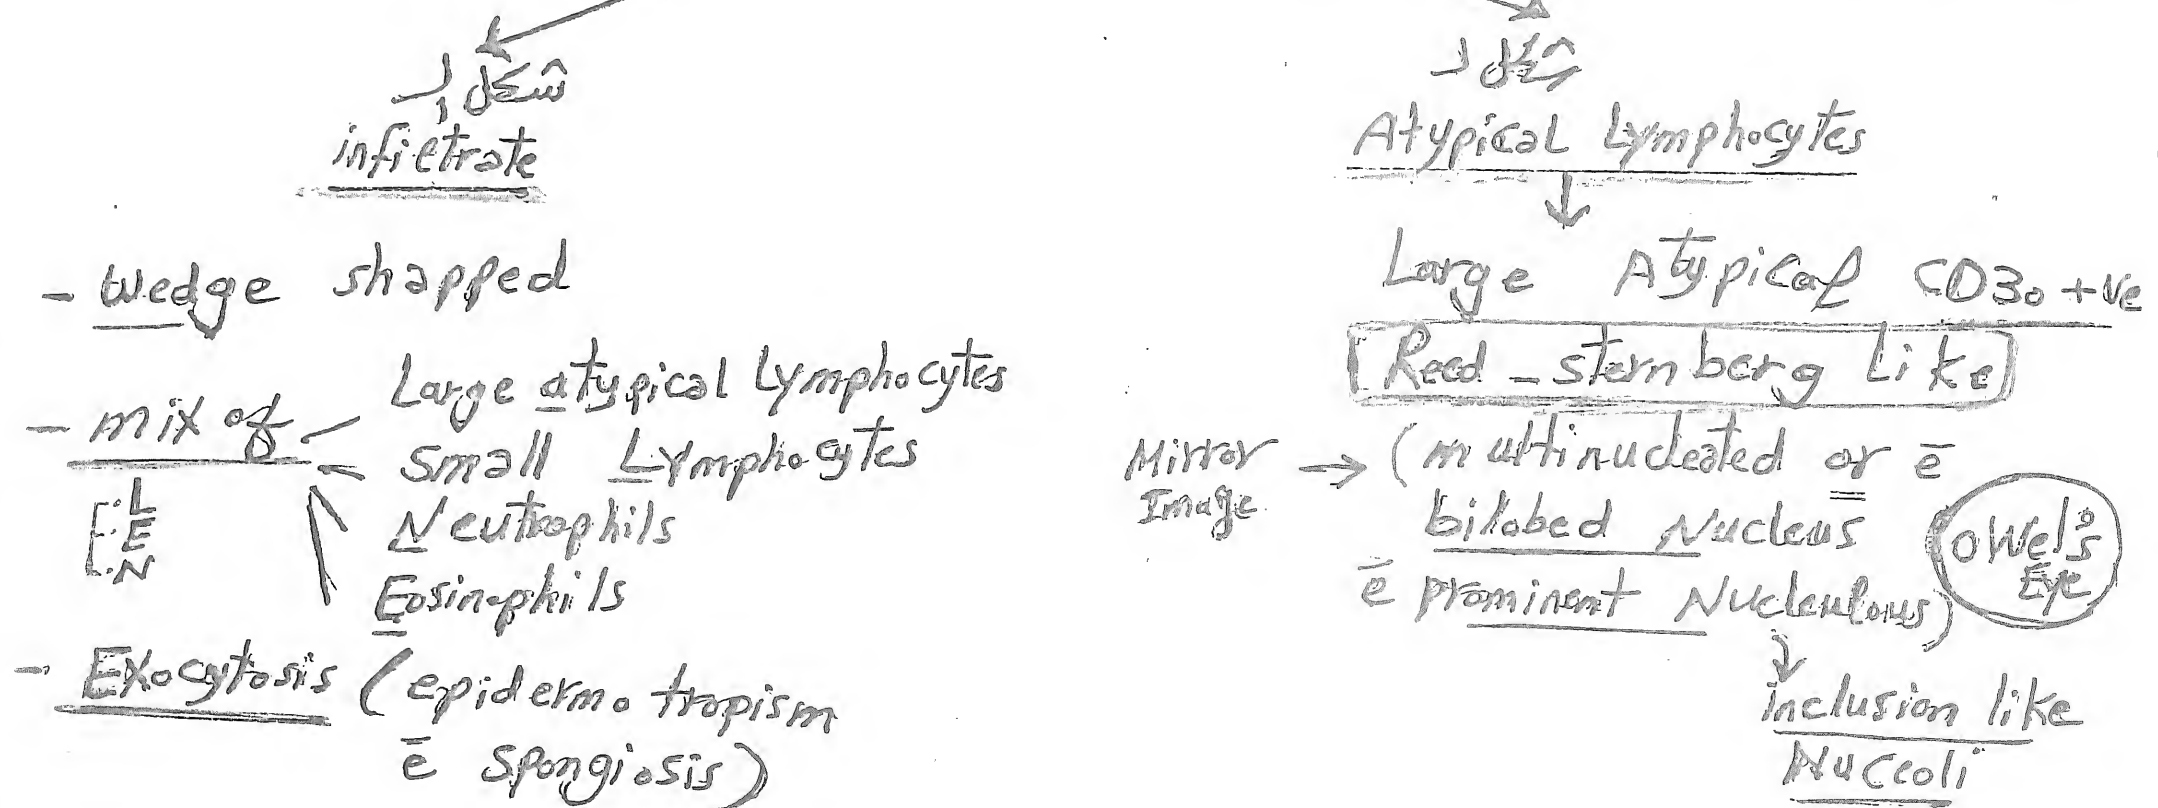 شكل الـ
infiltrate
- Wedge shapped
- mix of
Large atypical Lymphocytes
Small Lymphocytes
Neutrophils
Eosinophils
L
E
N
- Exocytosis (epidermotropism
ē spongiosis)
شكل الـ
Atypical Lymphocytes
Large Atypical CD30 +ve
[Reed_sternberg Like]
Mirror
Image
(multinucleated or ē
bilobed Nucleus
ē prominent Nucleulous)
owel's
Eye
inclusion like
Nuccoli